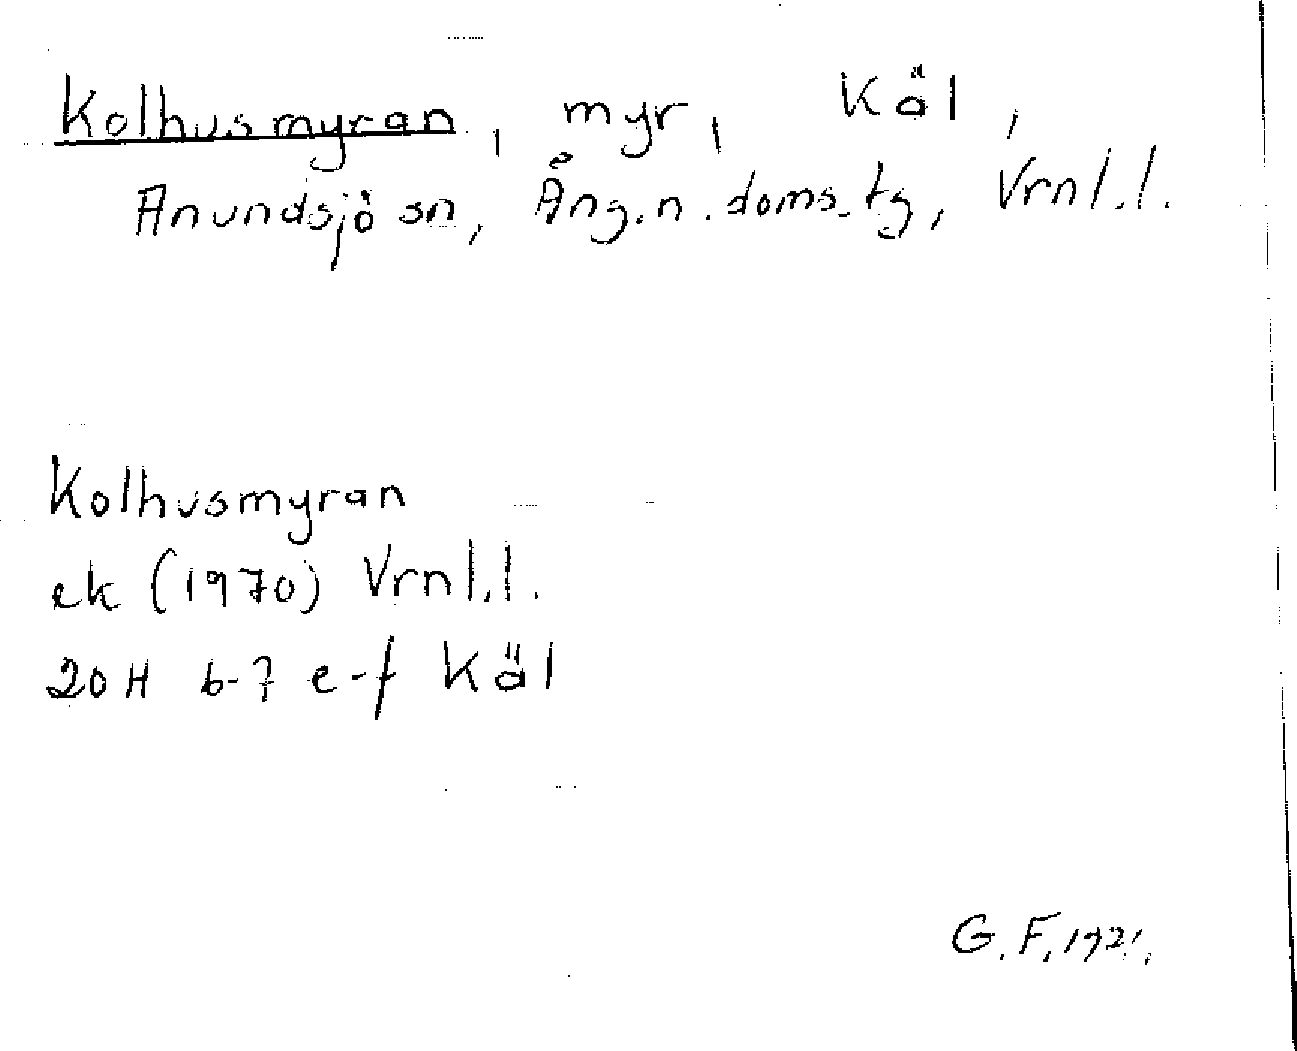 Kolhusmyran, myr, Käl,
Anundsjö sn, Ång.n.doms.tg, Vrnl.l.
Kolhusmyran
ek (1970) Vrnl.l.
20 H 6-7 e-f Käl
G. F.